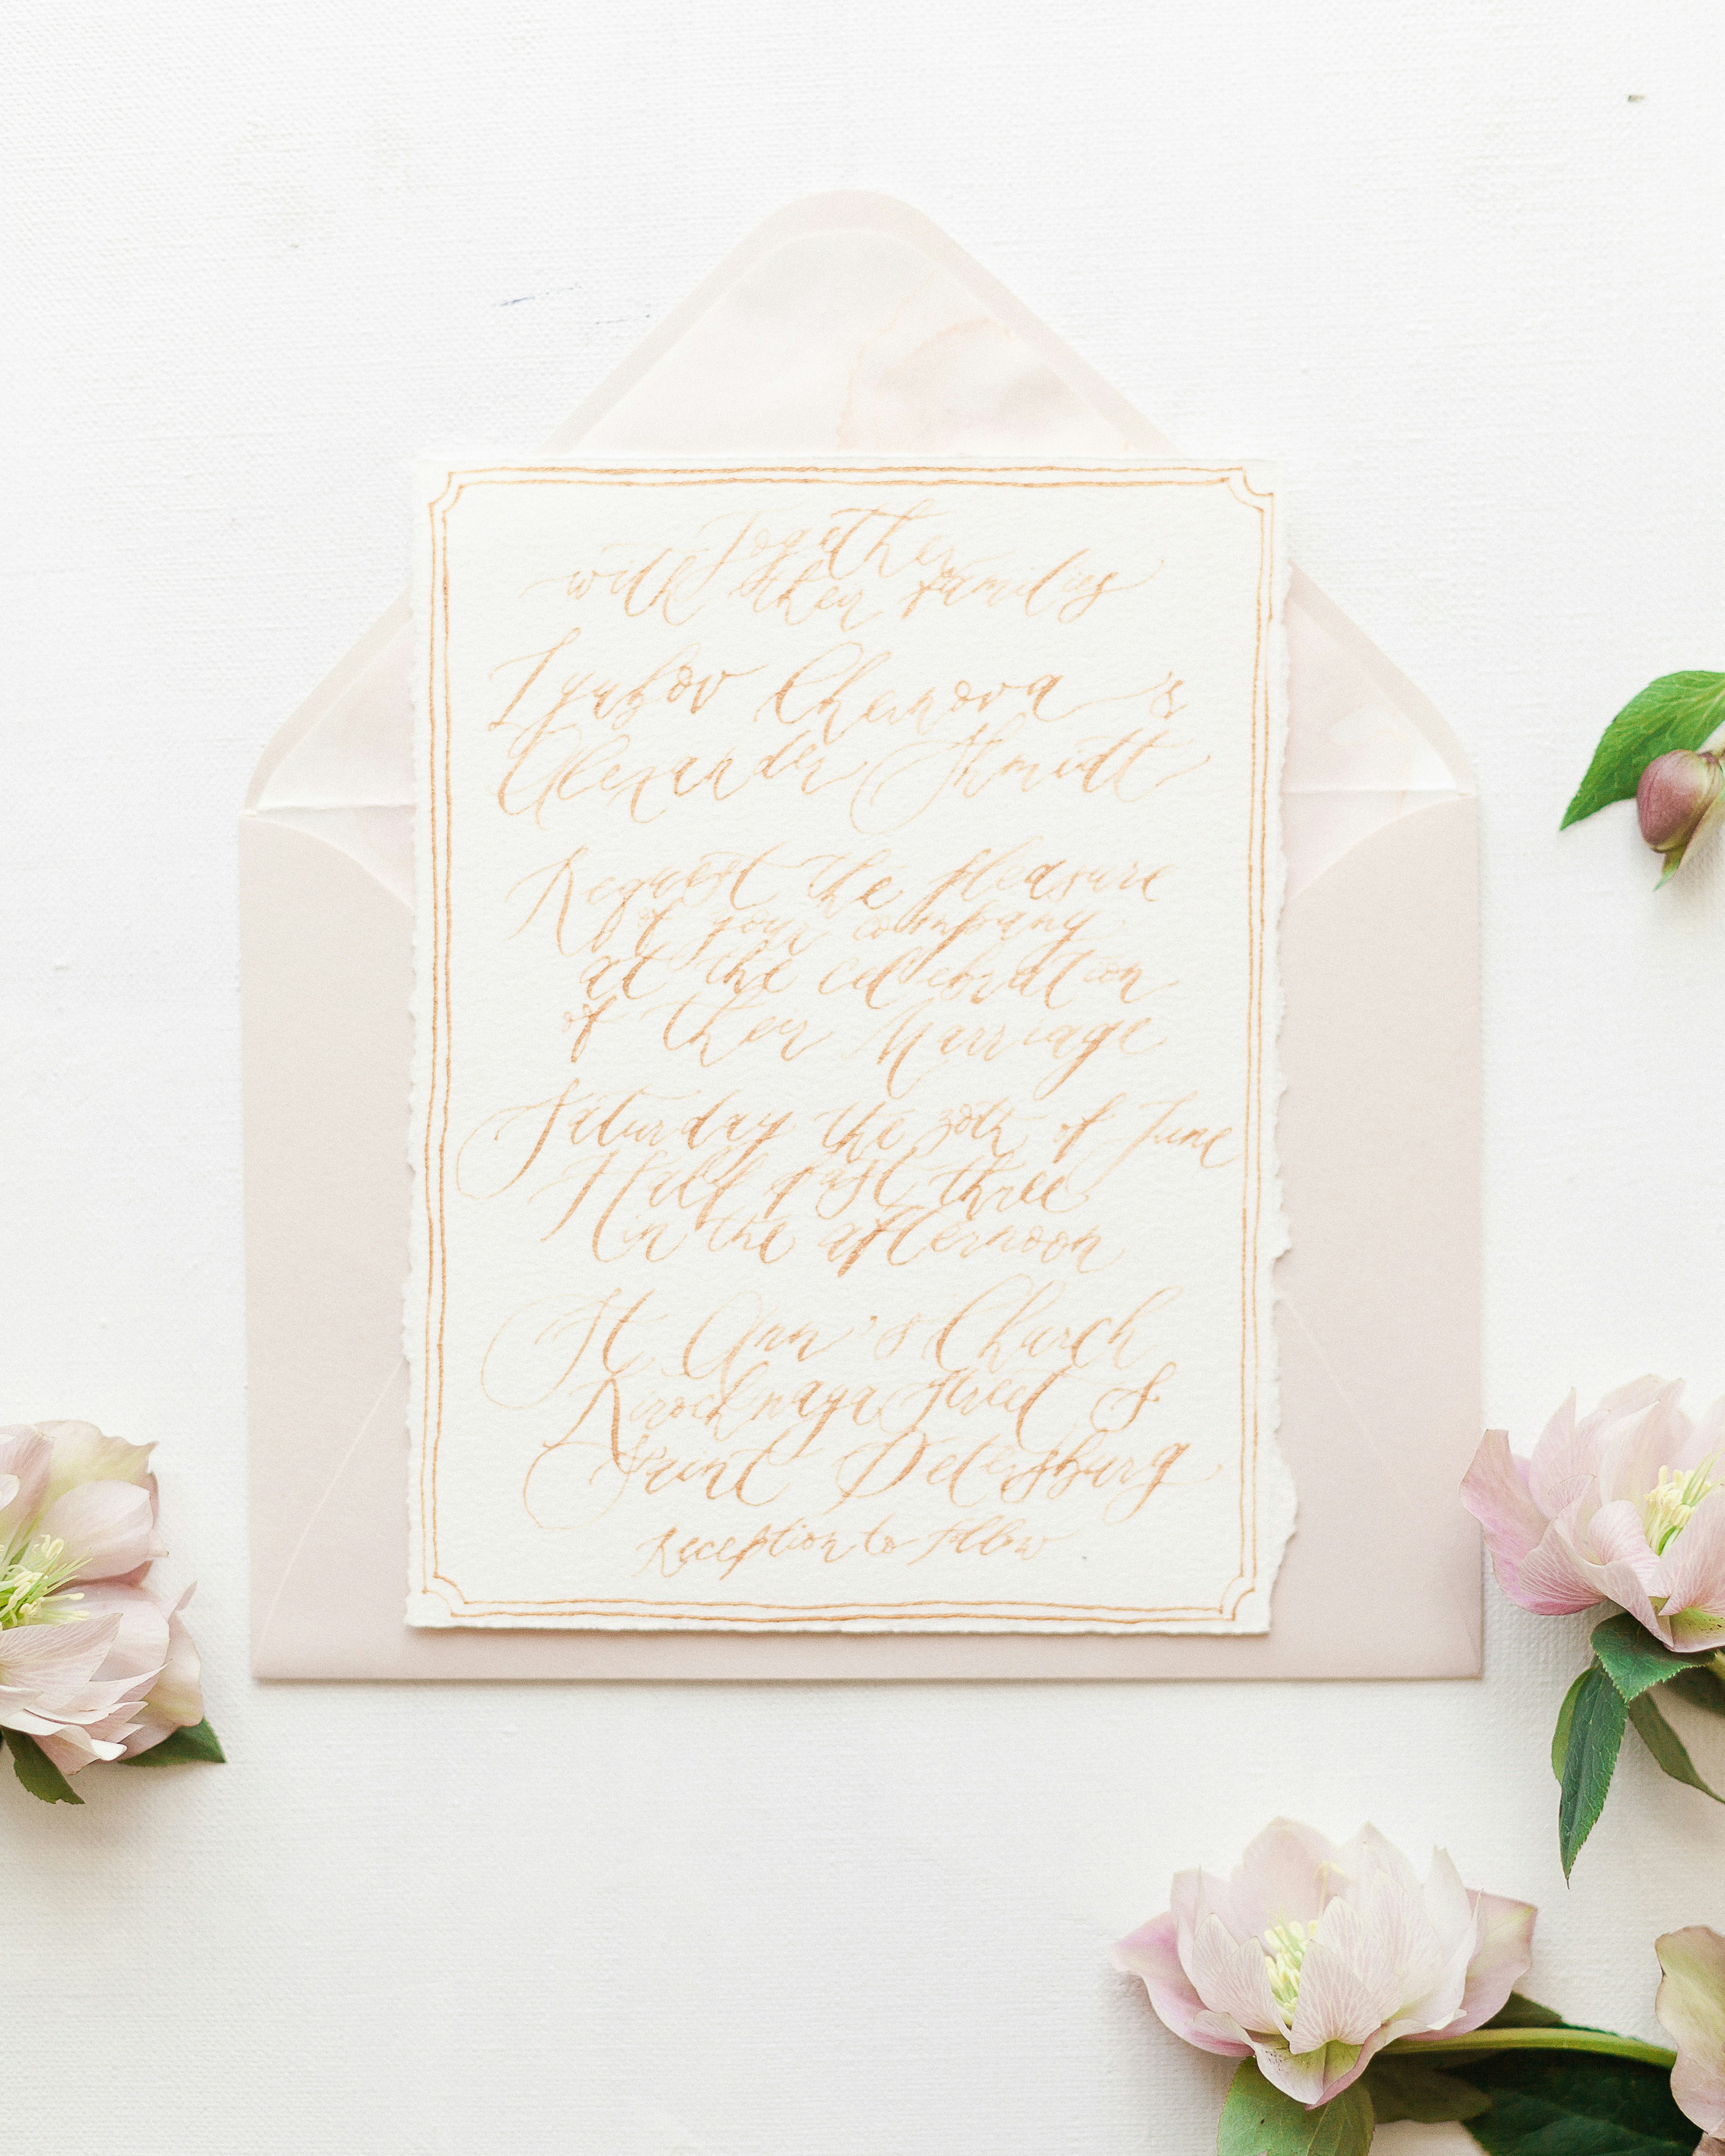 Together
with their families
Lyubov Chernova &
Alexander Shmidt
Request the pleasure
of your company
at the celebration
of their Marriage
Saturday the 30th of June
Half past three
in the afternoon
St Ann's Church
Street 8
Saint Petersburg
Reception to follow